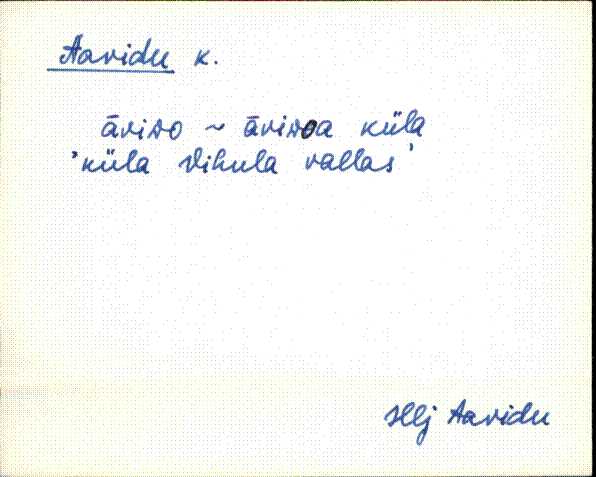 Aavidu k.
āviᴅo ~ āviᴅoa küla
'küla Vihula vallas'
Hlj Aavidu